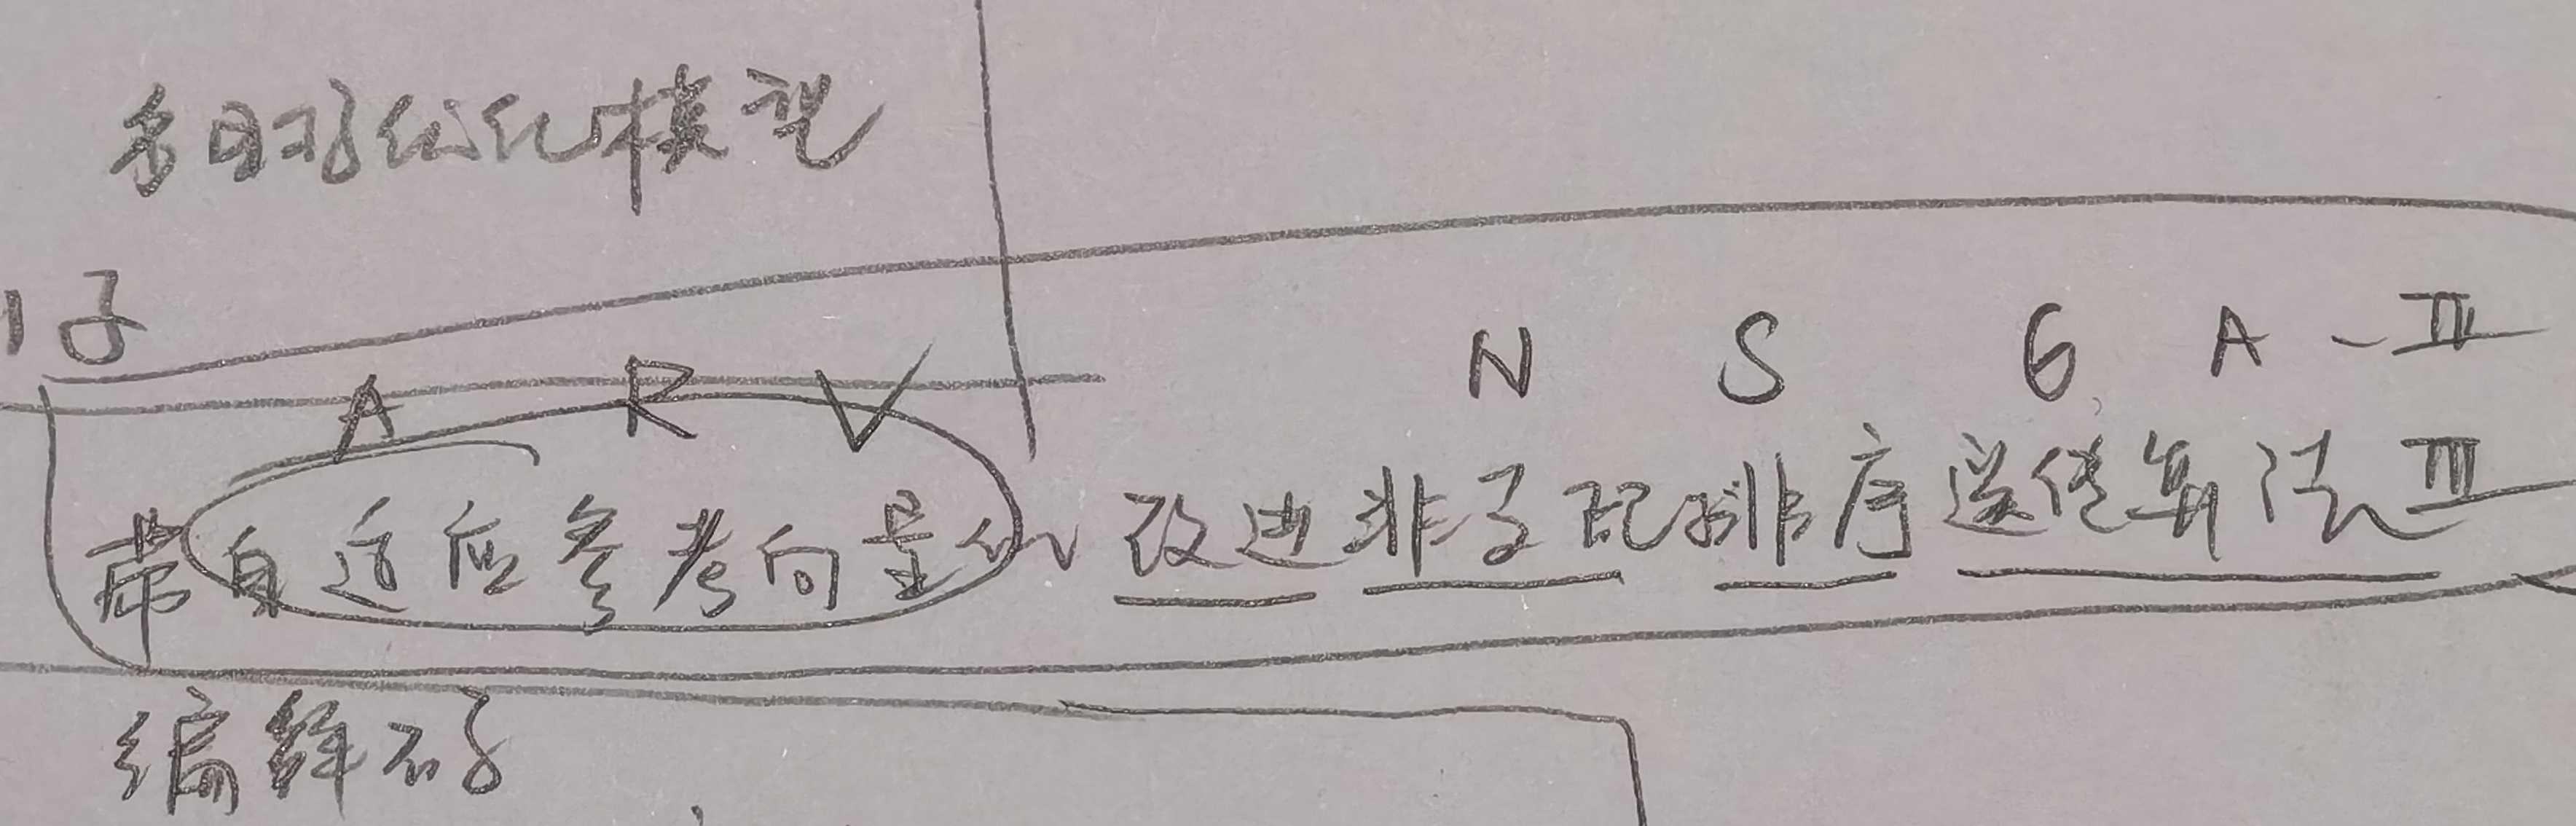 多目标优化模型
子
A R V N S G A - III
带自适应参考向量的 改进非支配排序遗传算法III
编解码